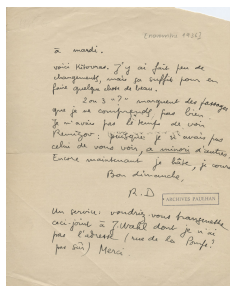 [novembre 1936]
à mardi.
voici Kitovras. J'y ai fait peu de
changements, mais ça suffit pour en
faire quelque chose de beau.
2 ou 3 "?" marquent des passages
que je ne comprends pas bien.
Je n'avais pas le temps de voir
Remizov: puisque je n'avais pas
celui de vous voir, a minori d'autres.
Encore maintenant je hâte, je cours
Bon dimanche,
R. D
ARCHIVES PAULHAN
Un service: voudriez-vous transmettre
ceci-joint à J. Wahl dont je n'ai
pas l'adresse (rue de la
pas sûr) Merci.